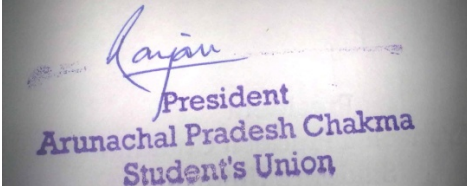 President
Arunachal Pradesh Chakma
Student's Union